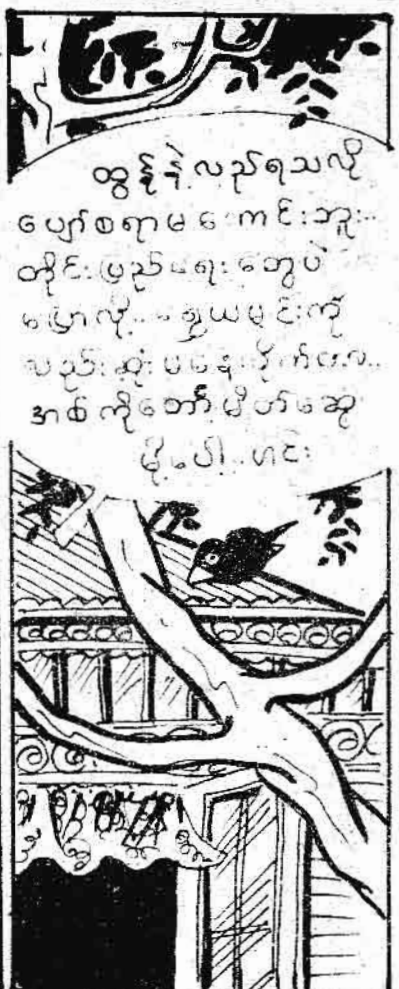 ထွန့်နဲ့လည်ရသလို
ပျော်စရာမကောင်းဘူး..
တိုင်းပြည်ရေးတွေပဲ
ပြောလို့..ရွှေယမင်းကို
လည်းဆုံးမနေလိုက်တာ..
အစ်ကိုတော်မိတ်ဆွေ
မို့ပေါ့..ဟင်း